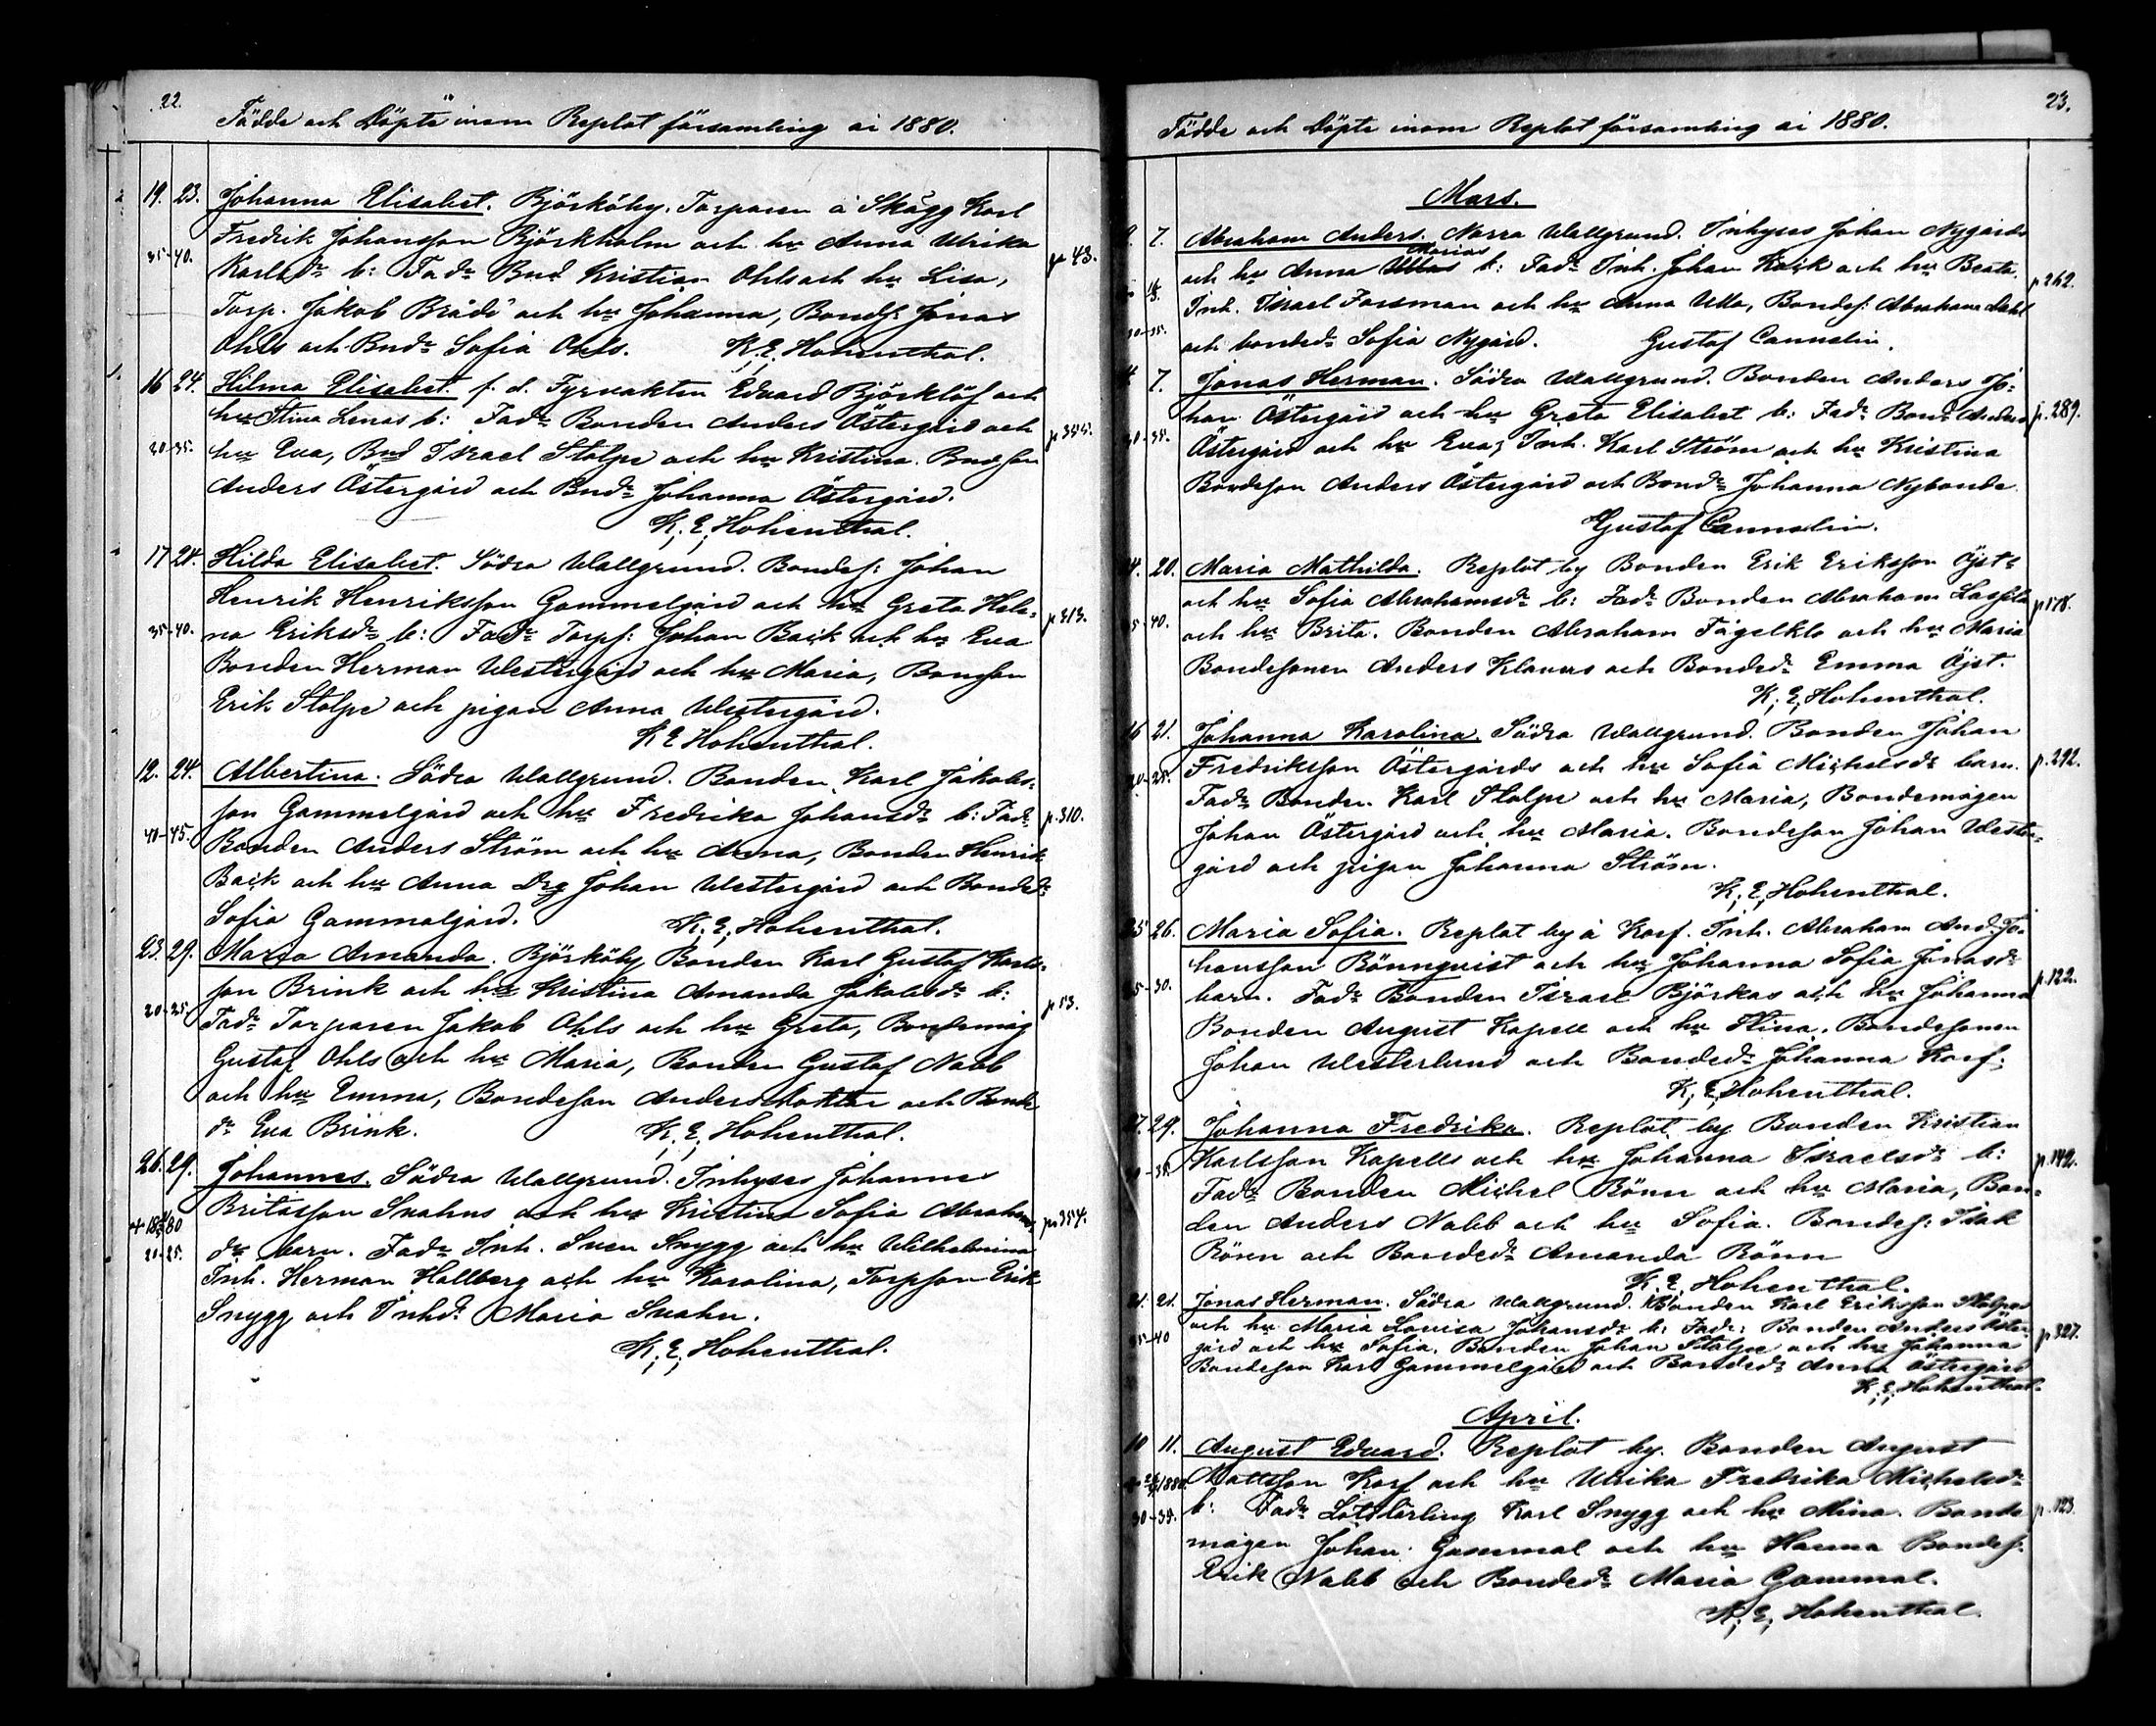 22.
Födde och Döpte inom Replot församling år 1880.
19. 23. Johanna Elisabet. Björköby. Torparen å Skägg Karl
Fredrik Johansson Björkholm och hu Anna Ulrika
35-40. Karlsdr b: Fadr Bnd Kristian Ohls och hu Lisa, p 43.
Torp. Jakob Bråda och hu Johanna, Bonds: Jonas
Ohls och Bndr Sofia Ohls. K. E. Hohenthal.
16 24. Hilma Elisabet. f. d. Fyrvakten Edvard Björklöf och
hu Stina Lenas b: Fadr Bonden Anders Östergård och p 355.
30-35. hu Eva, Bnd Israel Stolpe och hu Kristina. Bndson
Anders Östergård och Bndr Johanna Östergård.
K. E. Hohenthal.
17 24. Hilda Elisabet. Södra Wallgrund. Bondes: Johan
Henrik Henriksson Gammelgård och hu Greta Hele-
35-40. na Eriksdr b: Fadr Torps: Johan Back och hu Eva p 313.
Bonden Herman Westergård och hu Maria, Bonson
Erik Stolpe och pigan Anna Westergård.
K E Hohenthal.
12. 24. Albertina. Södra Wallgrund. Bonden Karl Jakobs-
son Gammelgård och hu Fredrika Johansdr b: Fadr p. 310.
40-45. Bonden Anders Ström och hu Anna, Bonden Henrik
Back och hu Anna Drg Johan Westergård och Bondedr
Sofia Gammelgård. K. E. Hohenthal.
23. 29. Maria Amanda. Björköby Bonden Karl Gustaf Karls-
son Brink och hu Kristina Amanda Jakobsdr b:
20-25. Fadr Torparen Jakob Ohls och hu Greta, Bondemåg p 53.
Gustaf Ohls och hu Maria, Bonden Gustaf Nabb
och hu Emma, Bondeson Anders och Bonde
dr Eva Brink. K. E. Hohenthal.
26. 29. Johannes. Södra Wallgrund. Inhyses Johannes
Britasson Svahns och hu Kristina Sofia Abrahams- p 354.
20-25. dr barn. Fadr Inh. Sven Snygg och hu Wilhelmina
Inh. Herman Hallberg och hu Karolina, Torpson Erik
Snygg och Inhdr Maria Svahn.
K. E. Hohenthal.
23.
Födde och Döpte inom Replot församling år 1880.
Mars.
7. Abraham Anders. Norra Wallgrund. Inhyses Johan Nygårds
Marias
och hu Anna Ullas b: Fadr Inh. Johan Kack och hu Beata. p 262.
Inh. Israel Forsman och hu Anna Ulla, Bondes: Abraham Dahl
30-35. och bondedr Sofia Nygård. Gustaf Cannelin.
7. Jonas Herman. Södra Wallgrund. Bonden Anders Jo-
han Östergård och hu Greta Elisabet b: Fadr Bond Anders p. 289.
30-35. Östergård och hu Eva, Inh. Karl Ström och hu Kristina
Bondeson Anders Östergård och Bondr Johanna Nybonde.
Gustaf Cannelin.
20. Maria Mathilda. Replot by Bonden Erik Eriksson Öjst
och hu Sofia Abrahamsdr b: Fadr Bonden Abraham p 178.
35-40. och hu Brita. Bonden Abraham Fågelklo och hu Maria
Bondesonen Anders Klavus och Bondedr Emma Öjst.
K. E. Hohenthal.
16 21. Johanna Karolina. Södra Wallgrund. Bonden Johan
20-25. Fredriksson Östergårds och hu Sofia Michelsdr barn. p. 292.
Fadr Bonden Karl Stolpe och hu Maria, Bondemågen
Johan Östergård och hu Maria. Bondeson Johan Wester-
gård och pigan Johanna Ström.
K. E. Hohenthal.
25 26. Maria Sofia. Replot by å Korf. Inh. Abraham And. Jo-
hansson Rönnqvist och hu Johanna Sofia Jonasdr
25-30. barn. Fadr Bonden Israel Björkas och hu Johanna p. 122.
Bonden August Kapell och hu Stina. Bondesonen
Johan Westerlund och Bondedr Johanna Korf.
K. E. Hohenthal.
27. 29. Johanna Fredrika. Replot by Bonden Kristian
30-35 Karlsson Kapells och hu Johanna Israelsdr b: p. 142.
Fadr Bonden Michel Rönn och hu Maria, Bon-
den Anders Nabb och hu Sofia. Bondes: Isak
Rönn och Bondedr Amanda Rönn
K. E. Hohenthal.
21. 21. Jonas Herman. Södra Wallgrund. Bonden Karl Eriksson Stolpas
och hu Maria Lovisa Johansdr b: Fadr: Bonden Anders Öster-
35-40 gård och hu Sofia. Bonden Johan Stolpe och hu Johanna p 327.
Bondeson Karl Gammelgård och Bondedr Anna Östergård
K. E. Hohenthal.
April.
10 11. August Edvard. Replot by. Bonden August
Mattsson Korf och hu Ulrika Fredrika Michelsdr
30-35. b: Fadr Lotslärling Karl Snygg och hu Mina. Bonde p. 123.
mågen Johan Gammal och hu Hanna Bondes:
Erik Nabb och Bondedr Maria Gammal.
K. E. Hohenthal.